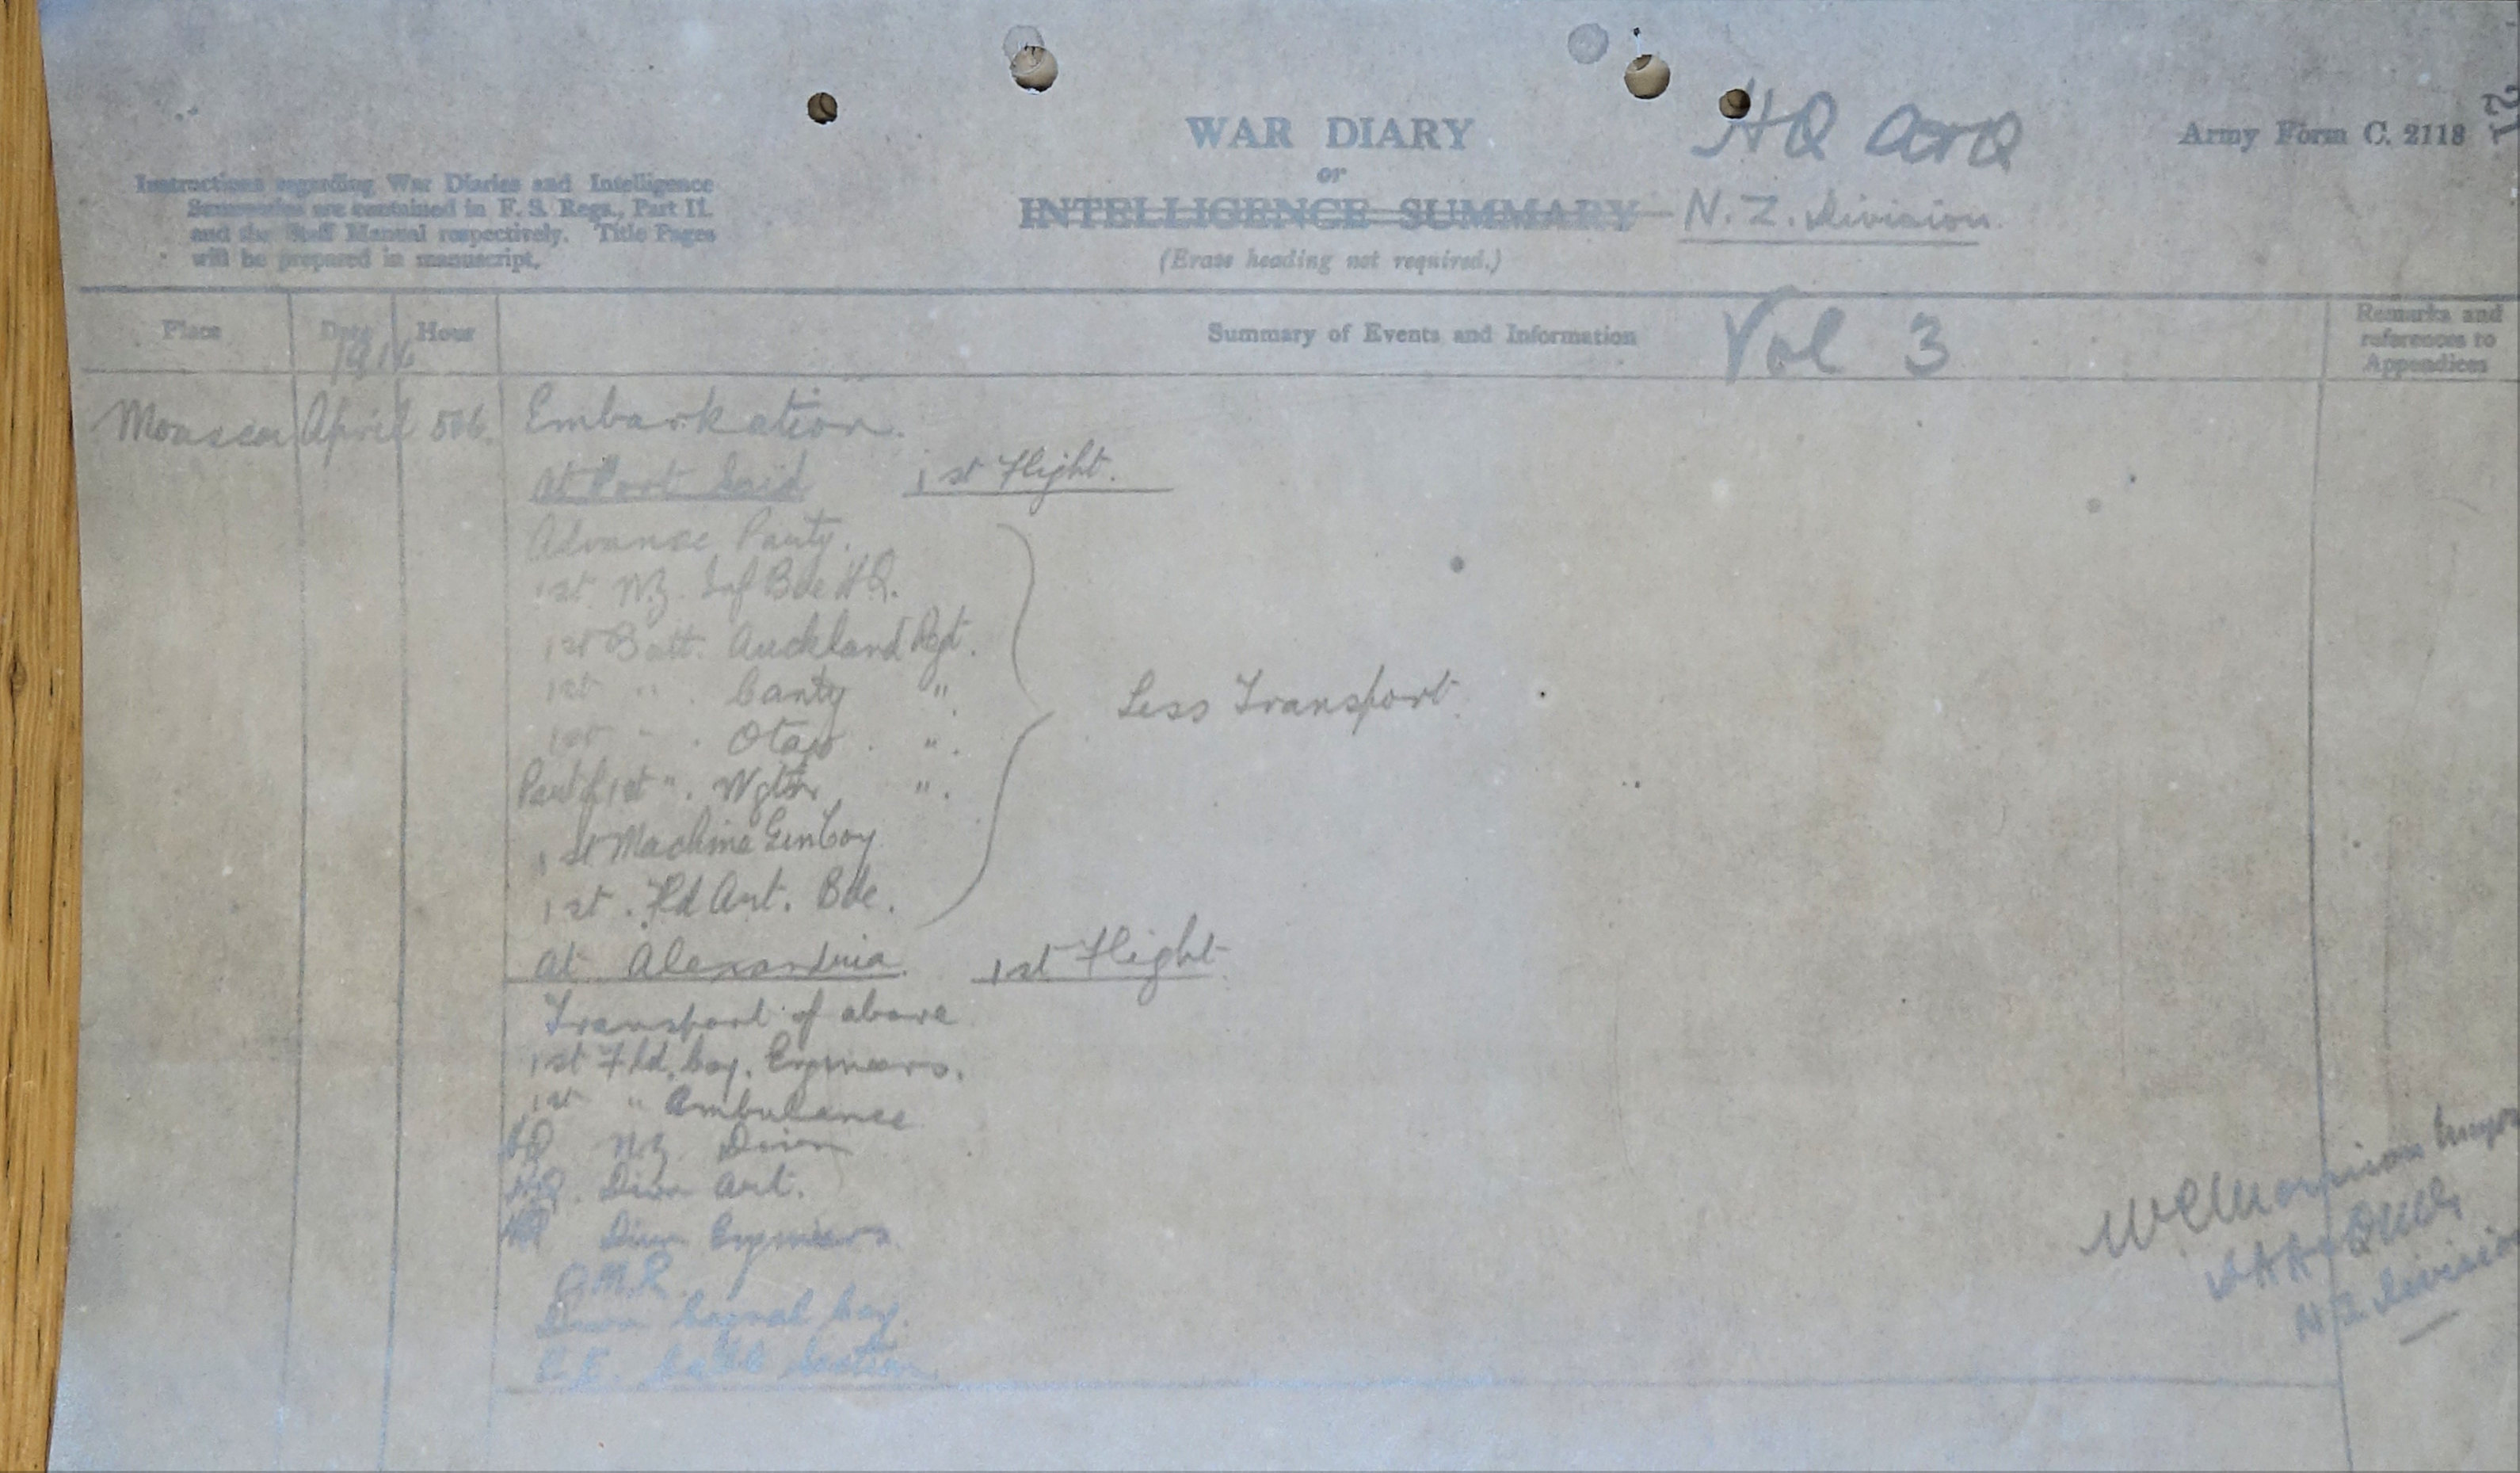 WAR DIARY
or
INTELLIGENCE SUMMARY
(Erase heading not required.)
HQ A&Q
N. Z. Division.
Army Form C. 2118
Instructions regarding War Diaries and Intelligence
Summaries are contained in F. S. Regs., Part II.
and the Staff Manual respectively. Title Pages
will be prepared in manuscript.
Place Date Hour Summary of Events and Information Remarks and references to Appendices
Vol 3
Moascar April 5th6. Embarkation.
At Port Said 1st Flight.
Advance Party.
1st N.Z. Inf Bde H.Q.
1st Batt. Auckland Rgt.
1st " . Canty "
1st " . Otago . " .
Part of 1st " . Wgtn " .
1st Machine Gun Coy.
1st . Fld Art. Bde.
Less Transport.
At Alexandria. 1st Flight
Transport of above
1st Fld. Coy. Engineers.
1st " Ambulance
HQ N.Z. Divn
HQ. Divn Art.
HQ Divn Engineers.
O.M.R.
Divn Signal Coy.
R.E. Cable Section
Major
DAA&QMG
N Z Division